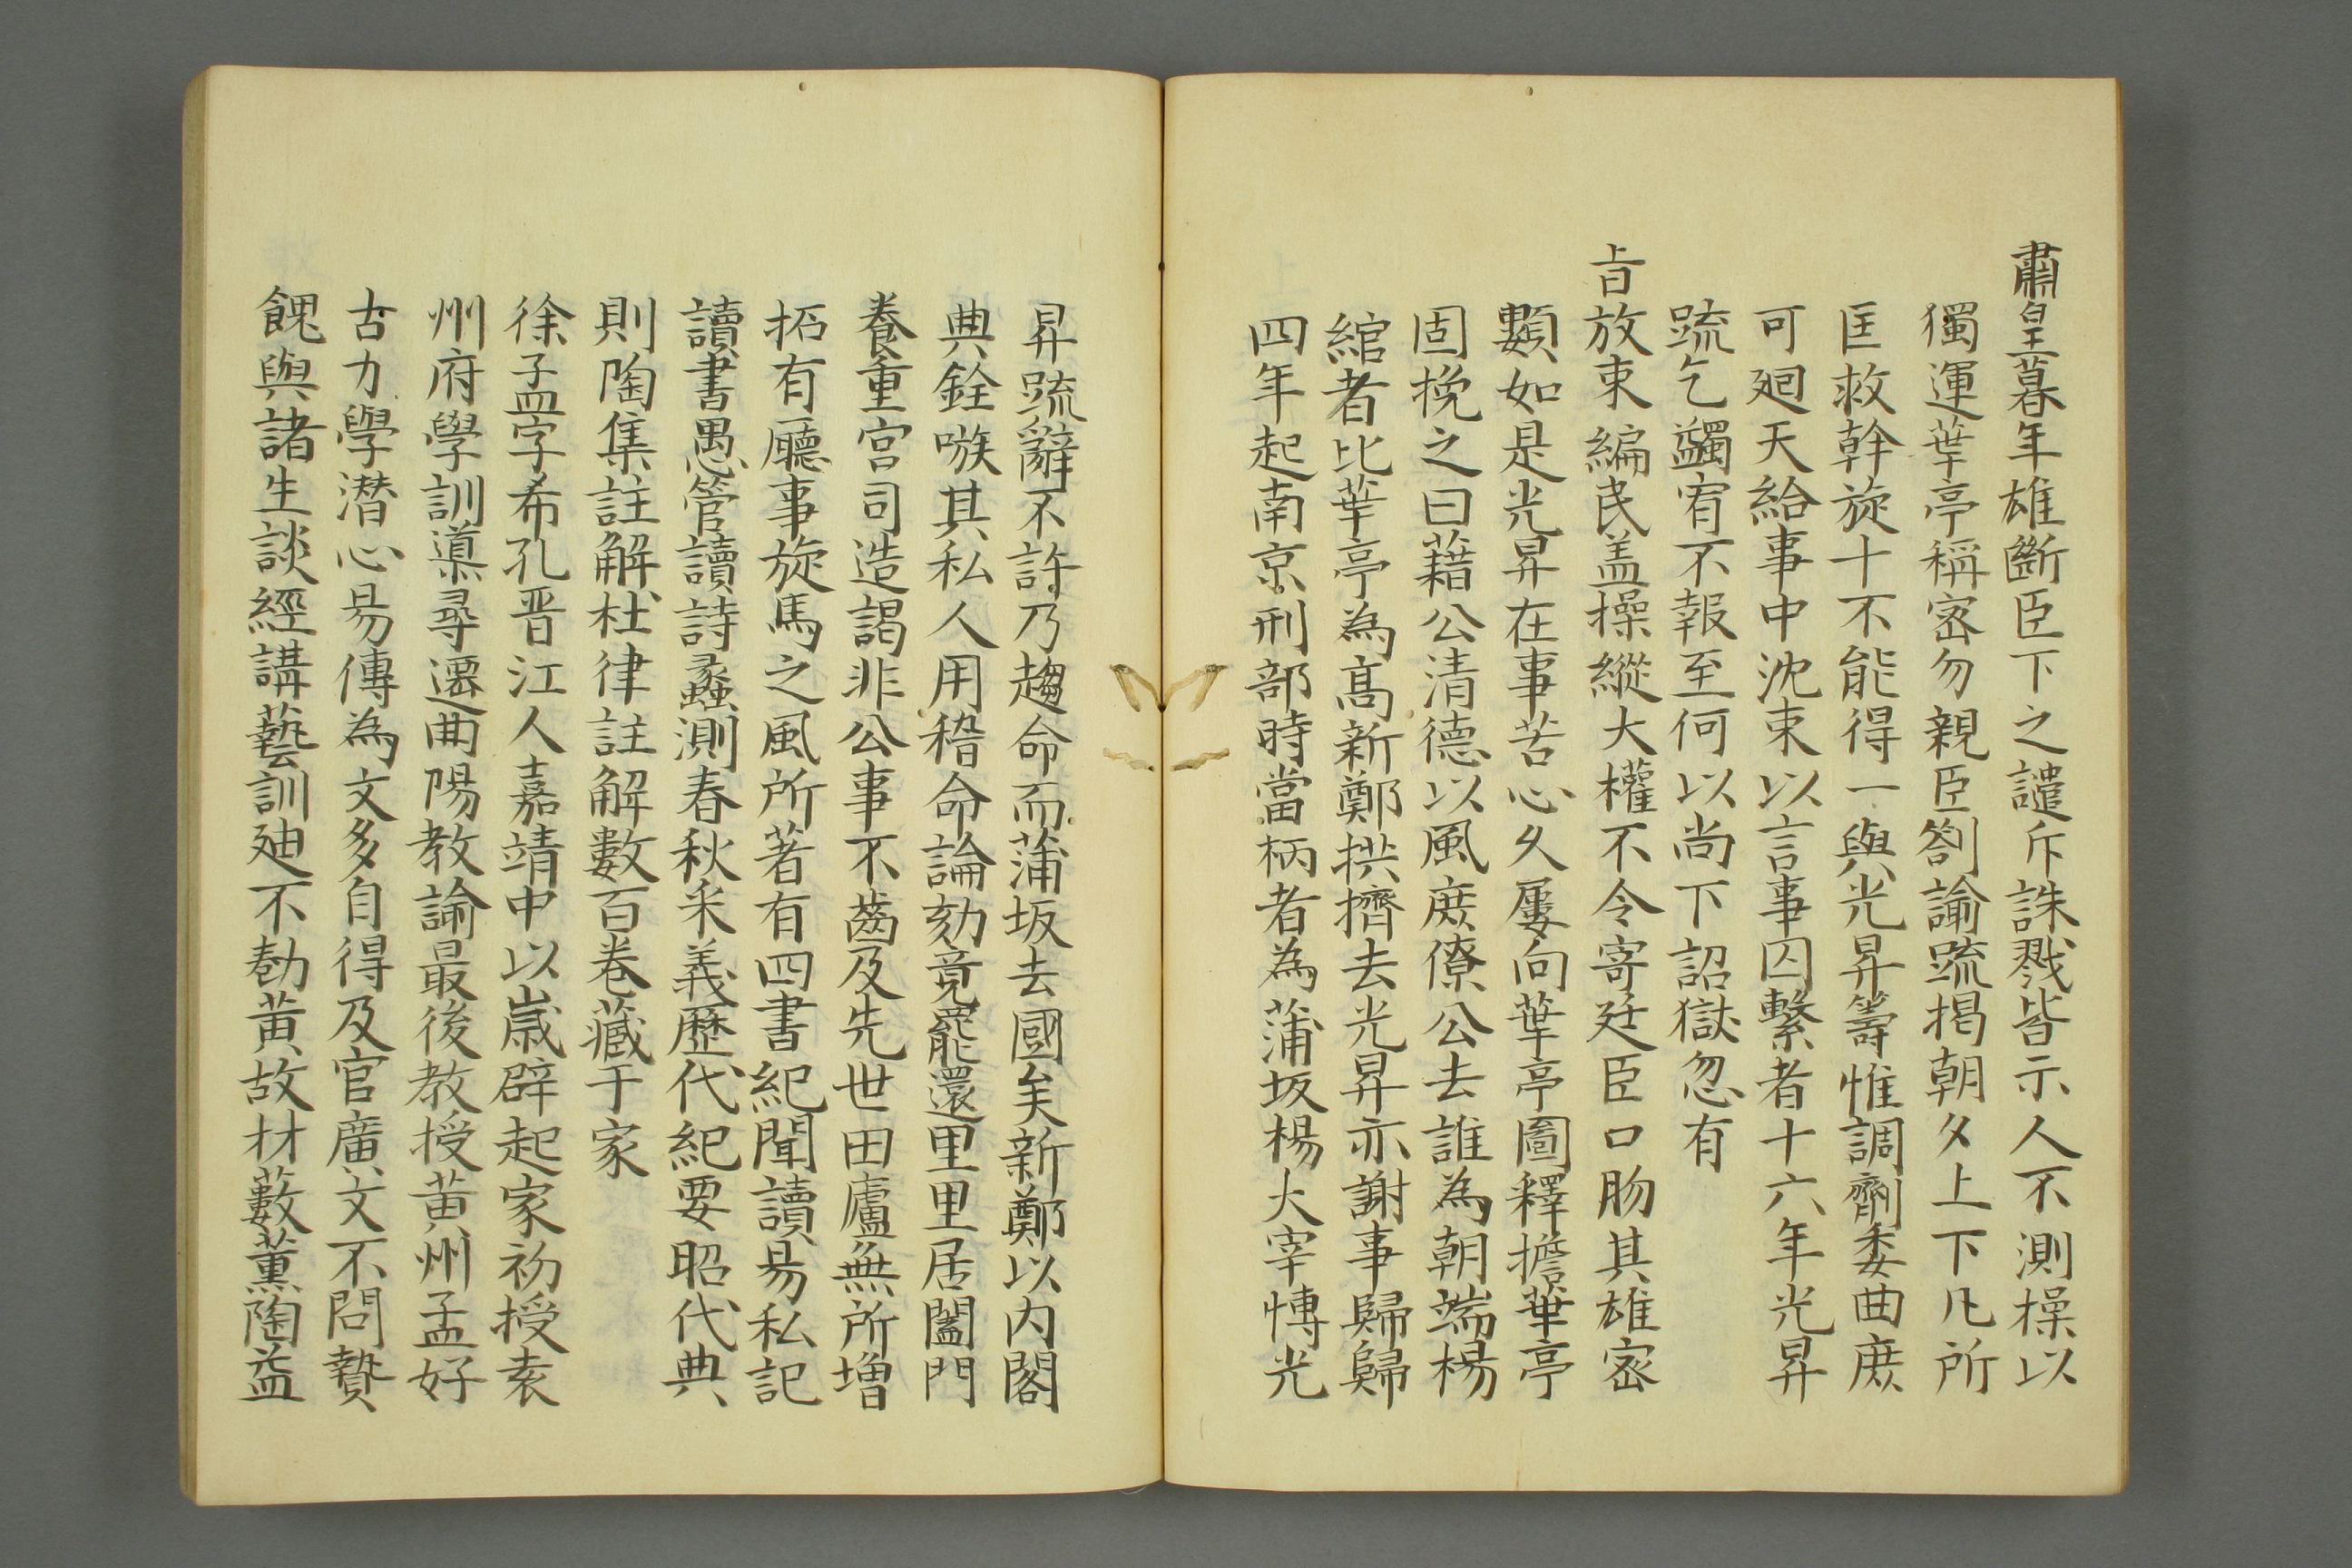 肅皇暮年雄斷臣下之譴斥誅戮皆示人不測操以
獨運華亭稱密勿親臣劄諭䟽揭朝夕上下凡所
匡救幹旋十不能得一與光昇籌惟調劑委曲庶
可廻天給事中沈束以言事囚繫者十六年光昇
䟽乞蠲宥不報至何以尚下詔獄忽有
旨放束編民盖操縱大權不令寄廷臣口肳其雄密
類如是光昇在事苦心久屢向華亭圖釋擔華亭
固挽之曰藉公清德以風庶僚公去誰為朝端楊
綰者比華亭為髙新鄭拱擠去光昇亦謝事歸歸
四年起南京刑部時當柄者為蒲坂楊大宰慱光
昇䟽辭不許乃趨命而蒲坂去國矣新鄭以内閣
典銓嗾其私人用稽命論劾竟罷還里里居闔門
養重宫司造謁非公事不齒及先世田廬無所增
拓有廳事旋馬之風所著有四書紀聞讀易私記
讀書愚管讀詩蠡測春秋采義歷代紀要昭代典
則陶集註解杜律註解數百卷藏于家
徐孟字希孔晋江人嘉靖中以歲辟起家初授袁
州府學訓導尋遷曲陽教諭最後教授黄州孟好
古力學潜心易傳為文多自得及官廣文不問贄
餽與諸生談經講藝訓廸不勌黄故材藪薰陶益